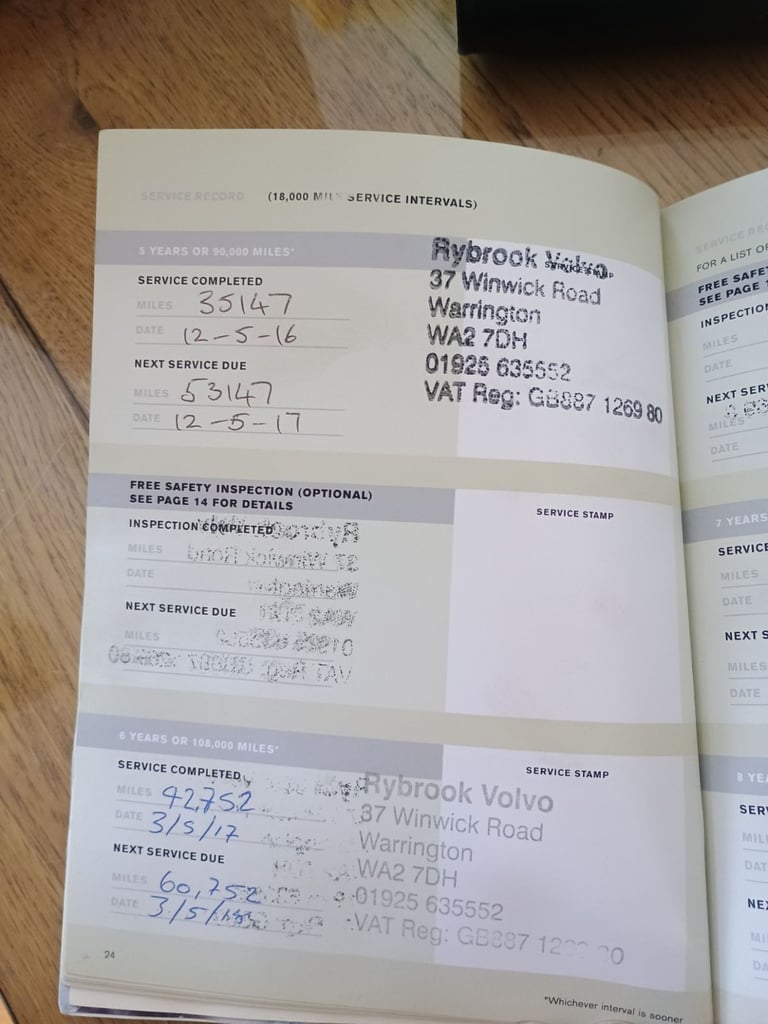 SERVICE RECORD (18,000 MILE SERVICE INTERVALS)
5 YEARS OR 90,000 MILES*
SERVICE STAMP
SERVICE COMPLETED
MILES 35147
DATE 12-5-16
NEXT SERVICE DUE
MILES 53147
DATE 12-5-17
Rybrook Volvo
37 Winwick Road
Warrington
WA2 7DH
01925 635552
VAT Reg: GB887 1269 80
FREE SAFETY INSPECTION (OPTIONAL)
SEE PAGE 14 FOR DETAILS
SERVICE STAMP
INSPECTION COMPLETED
MILES
DATE
NEXT SERVICE DUE
MILES
6 YEARS OR 108,000 MILES*
SERVICE STAMP
SERVICE COMPLETED
MILES 42,752
DATE 3/5/17
NEXT SERVICE DUE
MILES 60,752
DATE 3/5/18
Rybrook Volvo
37 Winwick Road
Warrington
WA2 7DH
01925 635552
VAT Reg: GB887
24
*Whichever interval is sooner
SERVICE
FOR A LIST
FREE
SEE PAGE
MILES
DATE
NEXT
MILES
DATE
7 YEARS
SERVICE
MILES
DATE
NEXT
MILES
DATE
8